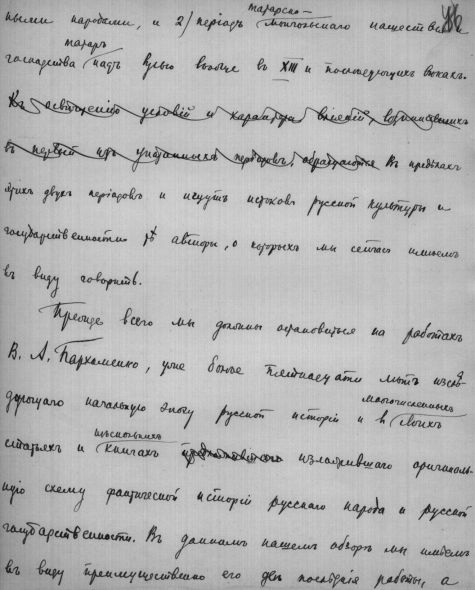 ными народами, и 2) періодъ татарско-монгольскаго нашествія и
господства татаръ надъ Русью вообще въ XIII и последующихъ вѣкахъ.
Къ освѣщенію условій и характера вліяній, возникавшихъ
въ первый изъ указанныхъ періодовъ, обращаются Въ предѣлахъ
этихъ двухъ періодовъ и ищутъ истоковъ русской культуры и
государственности тѣ авторы, о которыхъ мы сейчасъ имѣемъ
въ виду говорить.
Прежде всего мы должны остановиться на работахъ
В. А. Пархоменко, уже болѣе пятнадцати лѣтъ изслѣ-
дующаго начальную эпоху русской исторіи и въ многочисленныхъ своихъ
статьяхъ и нѣсколькихъ книгахъ изложившаго оригиналь-
ную схему фактической исторіи русскаго народа и русской
государственности. Въ данномъ нашемъ обзорѣ мы имѣемъ
въ виду преимущественно его двѣ послѣднія работы, а